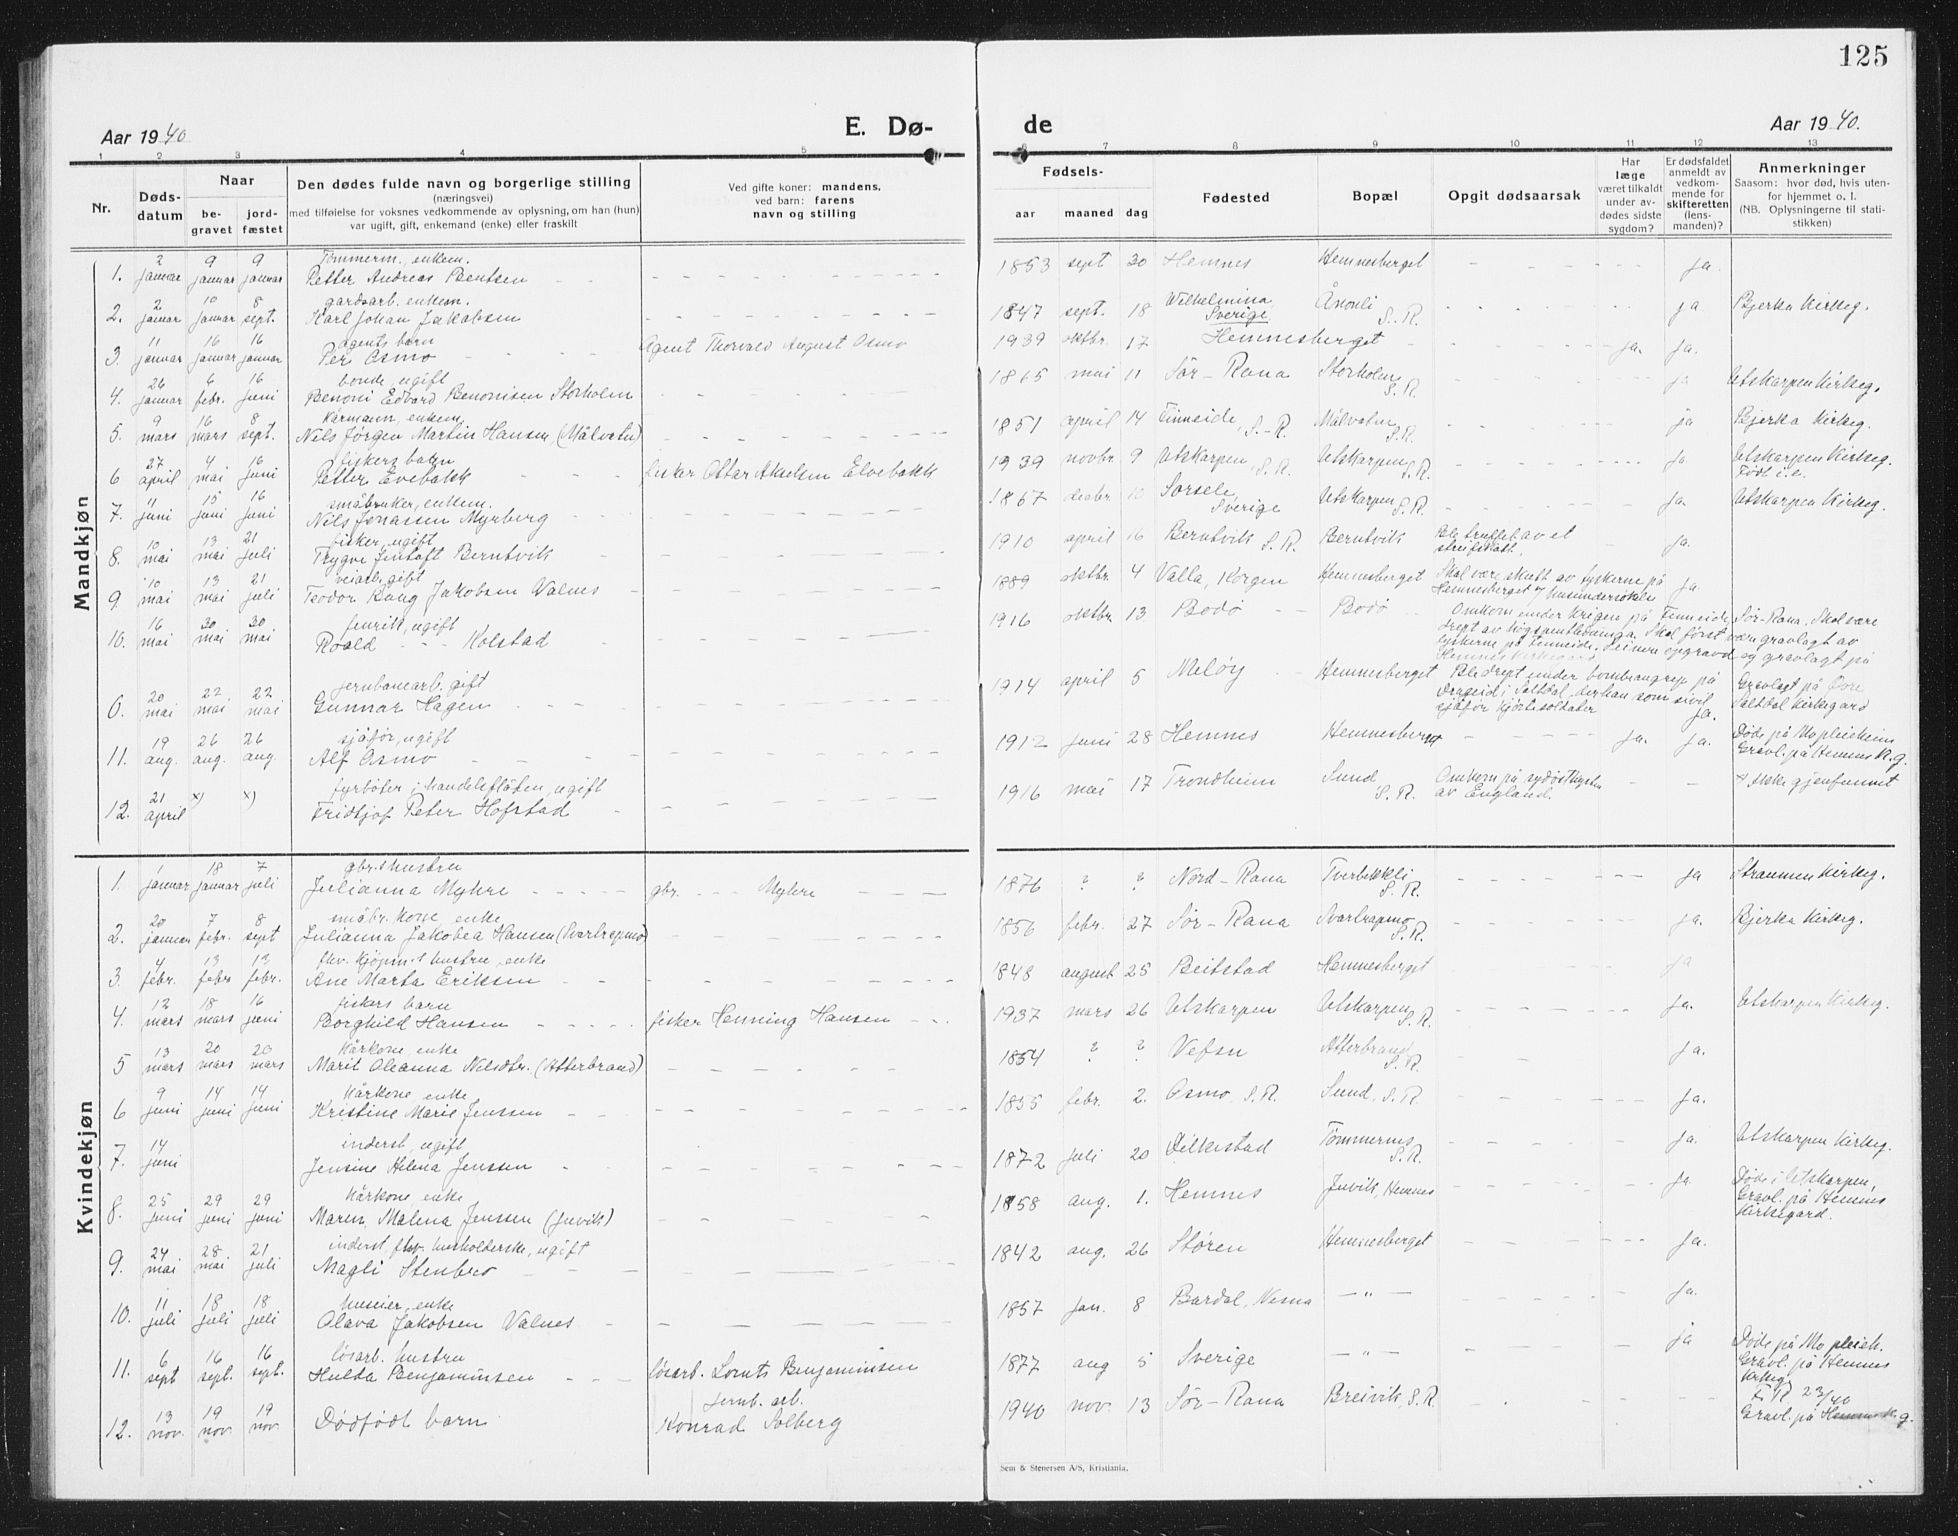 125
Aar 1940
E. Dø-
de
Aar 1940.
1 2 3 4 5
6 7 8 9 10 11 12 13
Nr.
Døds-
datum
Naar
be-
gravet
jord-
fæstet
Den dødes fulde navn og borgerlige stilling
(næringsvei)
med tilføielse for voksnes vedkommende av oplysning, om han (hun)
var ugift, gift, enkemand (enke) eller fraskilt
Ved gifte koner: mandens.
ved barn: farens
navn og stilling
Fødsels-
aar maaned dag
Fødested
Bopæl
Opgit dødsaarsak
Har
læge
været tilkaldt
under av-
dødes sidste
sygdom?
Er dødsfaldet
anmeldt av
vedkom-
mende for
skifteretten
(lens-
manden)?
Anmerkninger
Saasom: hvor død, hvis uten-
for hjemmet o. l.
(NB. Oplysningerne til stati-
stikken)
Mandkjøn
2 9 9 Tømmerm., enkem.
1. januar januar januar Petter Andreas Bentsen 1853 sept 30 Hemnes Hemnesberget ja
2 10 8 gardsarb. enkem.
2. januar januar sept. Karl Johan Jakobsen 1847 sept. 18 Wilhelmina Sverige Ånonli S. R. ja Bjerka Kirkeg.
11 16 16 agents barn
3. januar januar januar Per Osmo Agent Thorvald August Osmo 1939 oktbr. 17 Hemnesberget ja. ja.
26 6 16 bonde, ugift
4. januar febr. juni Benoni Edvard Benonisen Storholm 1865 mai 11 Sør-Rana Storholm S.R. ja Utskarpen Kirkeg.
9 16 8 Kårmann, enkem.
5. mars mars sept. Nils Jørgen Martin Hansen (Målvatn) 1851 april 14 Finneide, S.-R. Målvatn S.R. ja Bjerka Kirkeg.
27 4 16 fiskers barn
6 april mai juni Petter Evebakk fisker Ottar Akselsen Elvebakk 1939 novbr. 9 Utskarpen, S. R. Utskarpen S.R. ja Utskarpen Kirkeg.
Født i.e.
11 15 16 småbruker, enkem.
7. juni juni juni Nils Jonassen Myrberg 1867 desbr. 10 Sorsele, Sverige Utskarpen, S.R. ja. Utskarpen Kirkeg.
10 13 21 fisker, ugift
8. mai mai juli Trygve Jentoft Berntvik 1910 april 16 Berntvik S. R. Berntvik Ble truffet av et
streifskott. ja.
10 13 21 veiarb. gift
9 mai mai juli Teodor Jakobsen Valnes 1889 oktbr. 4 Valla, Korgen Hemnesberget Skal være skutt av tyskerne på
Hemnesberget v/ husundersøkelse ja.
16 30 30 fenrik, ugift
10. mai mai mai Roald Kolstad 1916 oktbr. 13 Bodø Bodø Omkom under krigen på Finneide, Sør-Rana. Skal være
drept av Skal først være gravlagt av
tyskerne på Finneide. Seinere opgravd og gravlagt på
Hemnes Kirkegård
20 22 22 jernbanearb. gift
0. mai mai mai Gunnar Hagen 1914 april 5 Meløy Hemnesberget Ble drept under bombeangrep på
i Saltdal, der han som sivil
sjåfør kjørte soldater ja. Gravlagt på Øvre
Saltdal Kirkegård
19 26 26 sjåfør, ugift
11. aug. aug. aug. Alf Osmo 1912 juni 28 Hemnes Hemnesberget ja. ja. Døde på Mo pleieheim
Gravl. på Hemnes K.g.
21 x) x) fyrbøter i handelsflåten, ugift
12. april Fridtjof Peter Hofstad 1916 mai 17 Trondheim Sund S. R. Omkom på sydøstkysten
av England. x Ikke gjenfunnet
Kvindekjøn
1 18 7 gbr.s hustru
1. januar januar juli Julianna Myhre gbr. Myhre 1876 ? ? Nord-Rana Tverbekkli S.R. ja Straumen Kirkeg.
20 7 8 småbr. kone enke
2. januar febr. sept Julianna Jakobea Hansen (Svartrapmo) 1856 febr. 27 Sør-Rana Svartrapmo S.R. ja. Bjerka Kirkeg.
4 13 13 fhv. kjøpm.s hustru, enke
3. febr. febr febr. Ane Marta Eriksen 1848 august 25 Beitstad Hemnesberget ja
12 18 16 fiskers barn
4. mars mars juni Borghild Hansen fisker Henning Hansen 1937 mars 26 Utskarpen Utskarpen S.R. ja. Utskarpen Kirkeg.
13 20 20 Kårkone, enke
5 mars mars mars Marit Oleanna Nilsdtr. (Atterbrand) 1854 ? ? Vefsn Atterbrand S.R. ja.
9 14 14 Kårkone, enke
6 juni juni juni Kristine Marie Jenssen 1855 febr. 2. Osmo, S.R. Sund, S.R. ja.
14 inderst, ugift
7. juni Jensine Helena Jenssen 1872 juli 20 Dilkestad Tømmernes S.R. ja. Utskarpen Kirkeg.
25 29 29 Kårkone, enke
8. juni juni juni Maren Malena Jenssen (Juvik) 1858 aug. 1. Hemnes Juvik, Hemnes ja Døde i Utskarpen,
Gravl. på Hemnes
Kirkegård.
24 28 21 inderst, fhv. husholderske, ugift
9. mai mai juli Magli Stenbro 1842 aug. 26 Støren Hemnesberget ja.
11 18 18 huseier, enke
10. juli juli juli Olava Jakobsen Valnes 1857 jan. 8 Bardal, Nesna — " — ja.
6 16 16 løsarb. hustru
11. sept sept. sept. Hulda Benjaminsen løsarb. Lornts Benjaminsen 1877 aug 5 Sverige — " — ja Døde på Mo pleieh.
Gravl. på Hemnes
Kirkeg
13 19 19 jernb. arb.
12. nov. nov. nov. Dødfødt barn Konrad Solberg 1940 nov. 13 Sør-Rana Breivik, S.R. 23/40
Gravl. på Hemnes K.g.
Sem & Stenersen A/S, Kristiania.